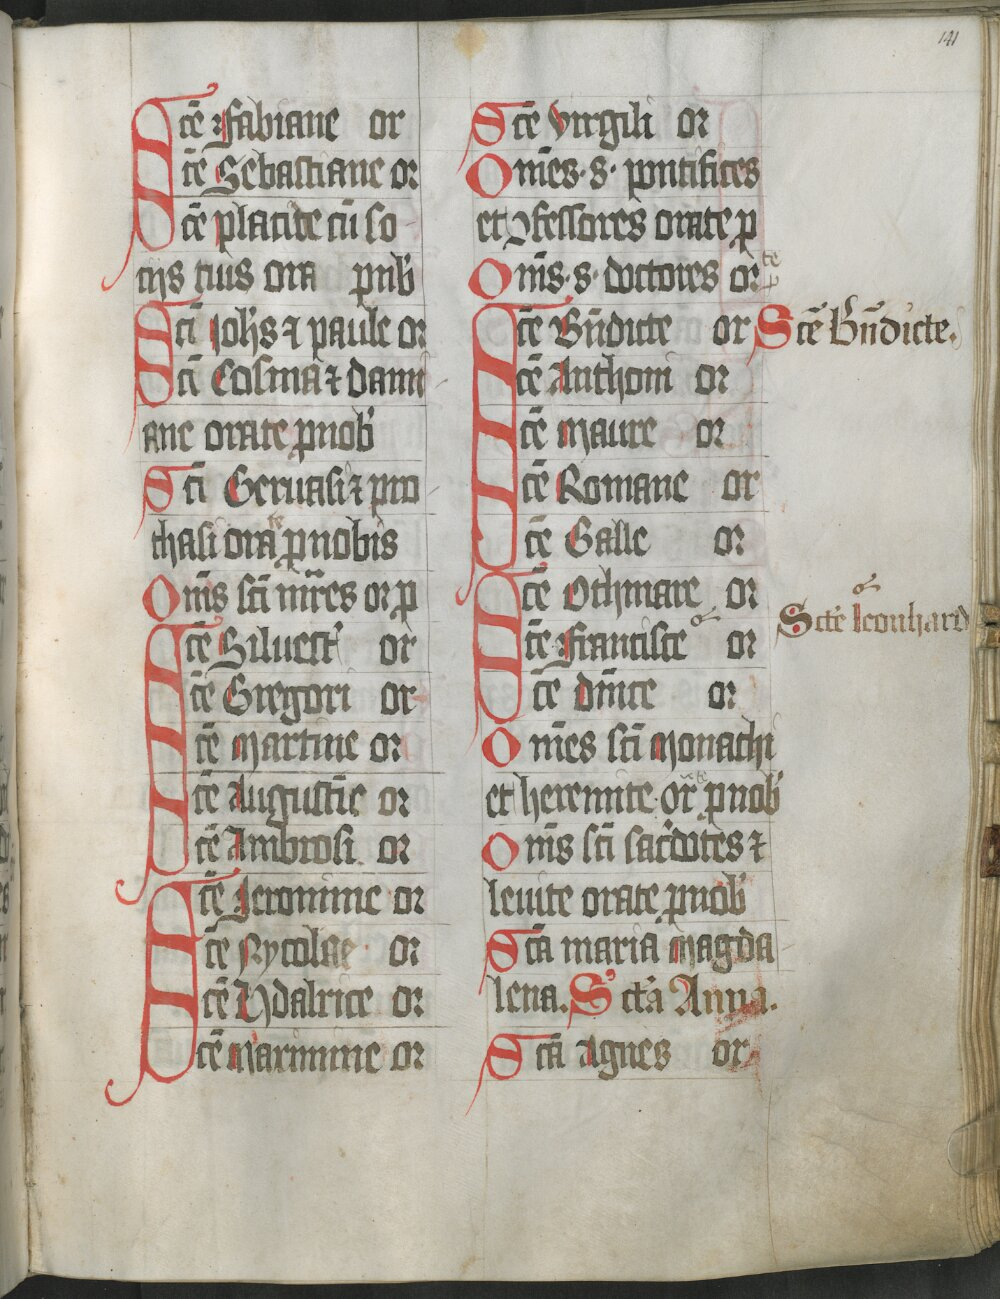 141
Scē Fabiane or
Scē Sebastiane or
Scē placide cū so
cijs tuis ora pnob
Scī Johīs ⁊ paule or
Scī Cosma ⁊ dami
ane orate pnob
Scī Geruasi ⁊ pro
thasi orate pnobis
Om̄s scī mr̄es or p
Scē Siluestr or
Scē Gregori or
Scē Martine or
Scē Augustīe or
Scē Ambrosi or
Scē Jeronime or
Scē Nycolae or
Scē Vdalrice or
Scē Maximine or
Scē Virgili or
Om̄es s pontifices
et ꝯfessores orate p
Om̄s s doctores orte p
Scē Bn̄dicte or
Scē Anthoni or
Scē Maure or
Scē Romane or
Scē Galle or
Scē Othmare or
Scē Francisce or
Scē Dn̄ice or
Om̄es scī Monachi
et heremite or pnob
Om̄s scī sac̄dotes ⁊
leuite orate pnob
Scā maria Magda
lena. Sctā Anna.
Scā Agnes or
Scē Bn̄dicte.
Sctē Leonhard